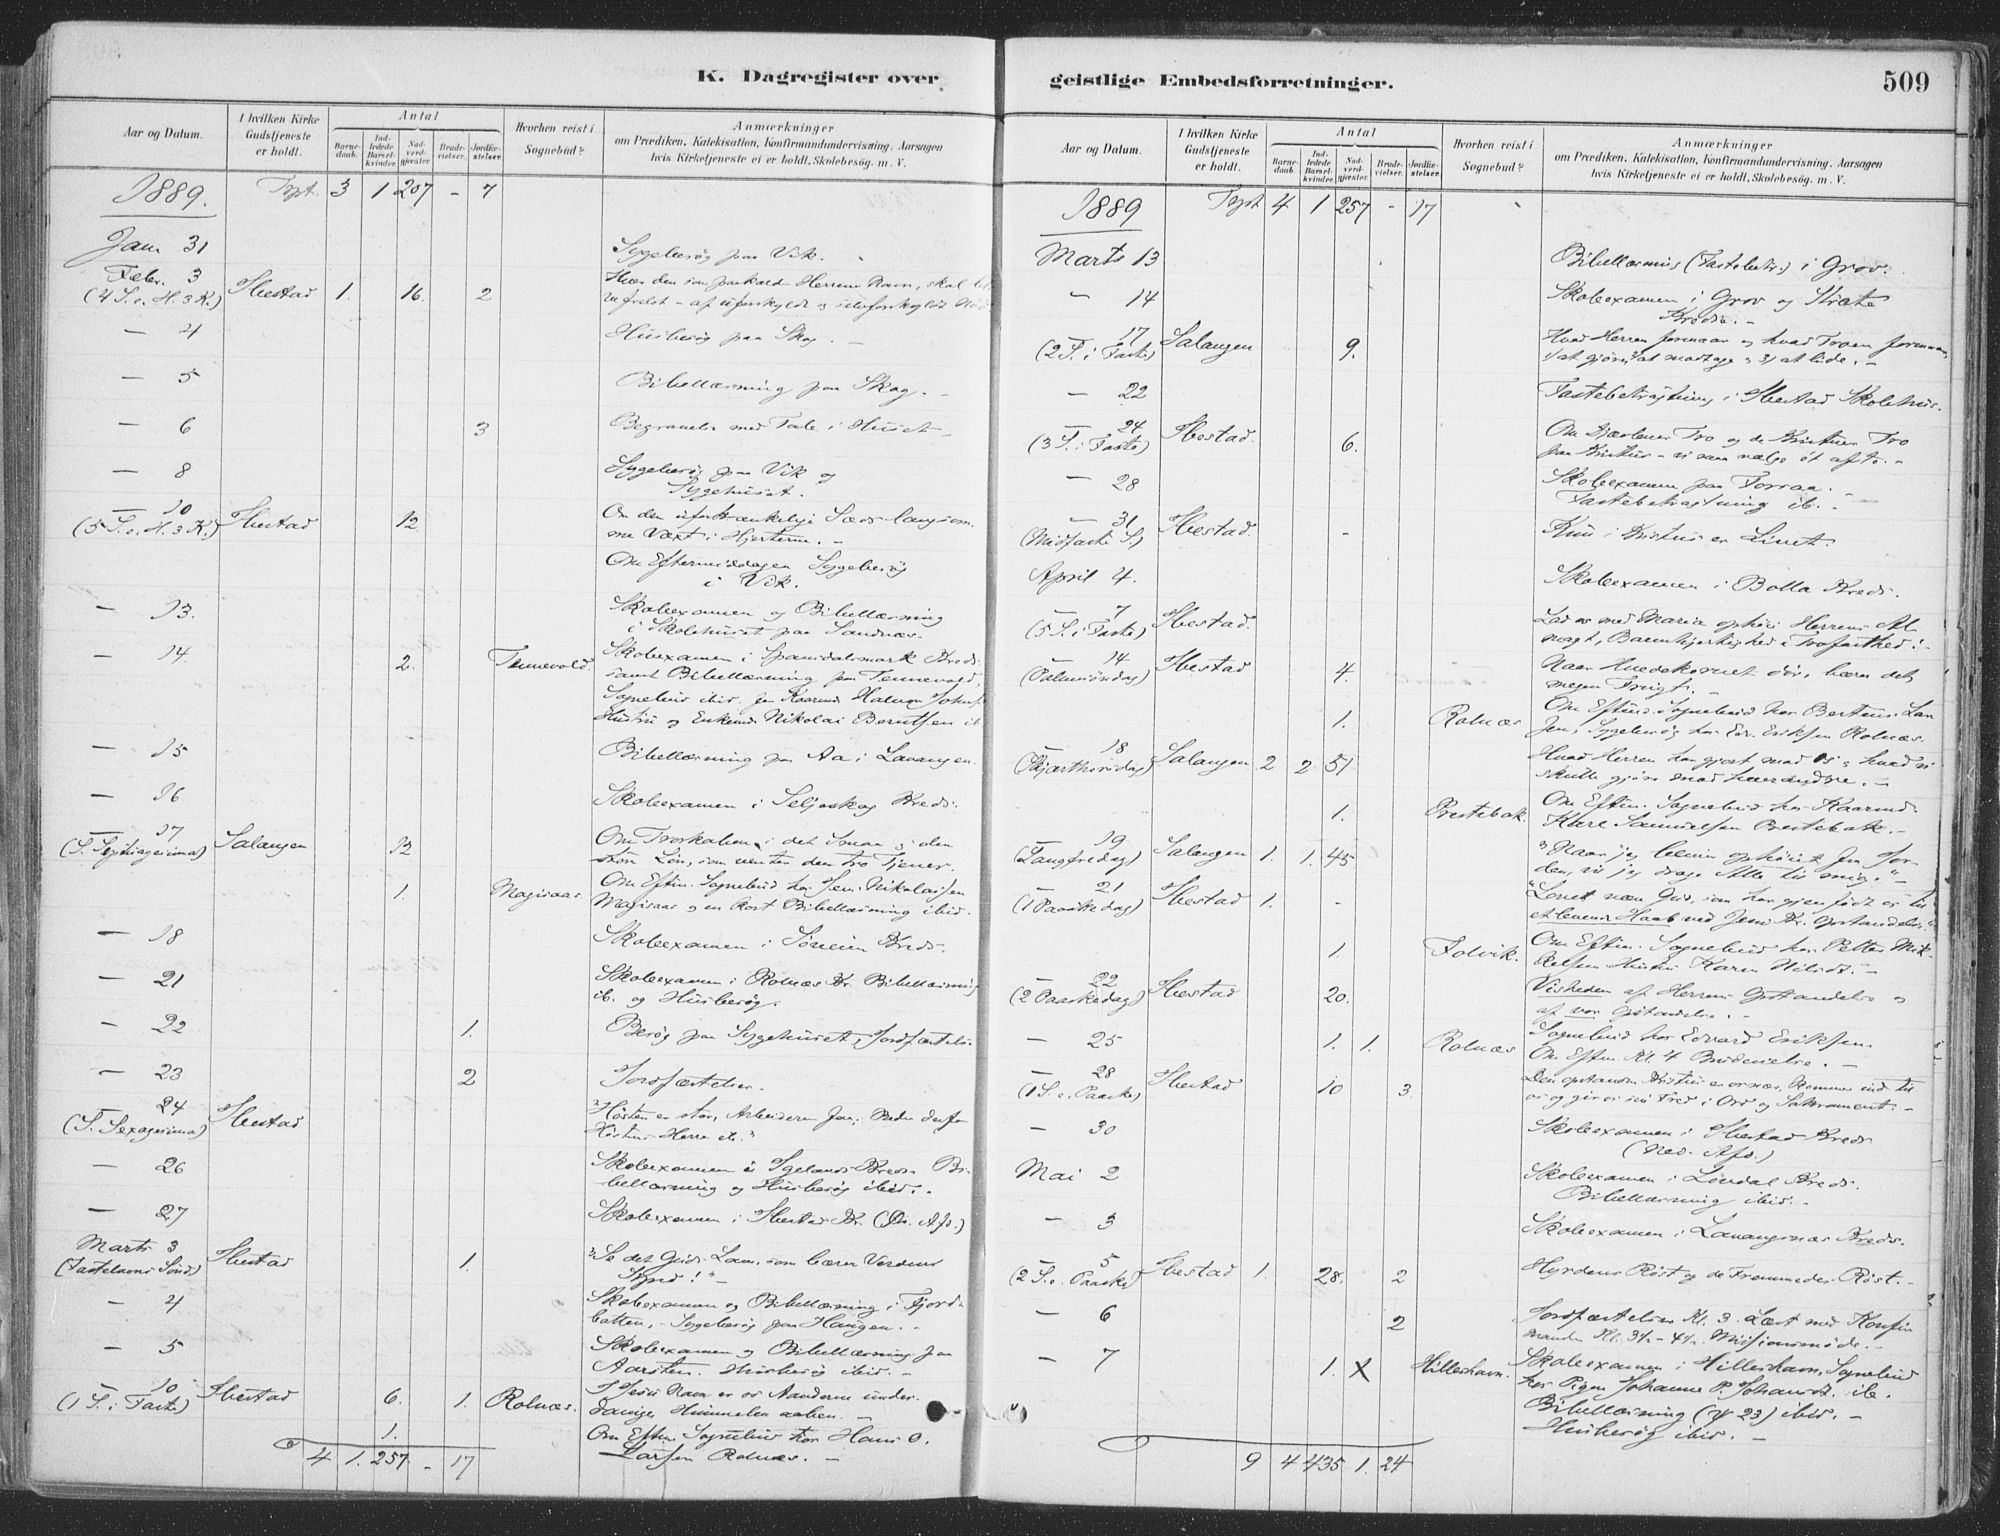 K. Dagregister over
Aar og Datum.
I hvilken Kirke Gudstjeneste er holdt.
Antal
Barnedaab.
Indledede Barselkvinder.
Nadverdgjæster.
Brudevielser.
Jordfæstelser.
Hvorhen reist i Sognebud?
Anmærkninger
om Prædiken, Katekisation, Konfirmandundervisning. Aarsagen
hvis Kirketjeneste ei er holdt, Skolebesøg. m. V.
1889. Tspt. 3 1 207 - 7
Jan. 31 Sygebesøg paa Vik.
Febr. 3 Hver den som paakalder Herrens Navn, skal
(4 S. e. H. 3 K.) Ibestad 1. 16. 2
- 4 Husbesøg paa Skog. -
- 5 Bibellæsning paa Skog. -
- 6 3 Begravelse med Tale i Huset -
- 8 Sygebesøg paa Vik og
Sygehuset.
- 10 Om den
(5 S. e. H. 3 K.) Ibestad 12
me Væxt i Hjerterne. -
Om Eftermiddagen Sygebesøg
i Vik.
- 13. Skoleexamen og Bibellæsning
i Skolehuset paa Sandnæs.
- 14 2. Tennevold. Skoleexamen i Spansdalsmark Kreds
samt Bibellæsning paa Tennevold,
Sognebud ibid. for Kaarmd Halvor Johns.
Hustru og Enkemd Nikolai Berntsen ib
- 15 Bibellæsning paa Aa i Lavangen.
- 16 Skoleexamen i Seljeskog Kreds.
- 17 Om Troskaben i det Smaa og den
(S. Septuagesima) Salangen 12. store Løn, som venter den tro Tjener.
1. Magisaas Om Eftm. Sognebud hos Jens Nikolaisen
Magisaas og en kort Bibellæsning ibid.
- 18 Skoleexamen i Søreien Kreds.
- 21 Skoleexamen i Rolnæs Kr. Bibellæsning
ib. og Husbesøg.
- 22 1. Besøg paa Sygehuset, Jordfæstelse
- 23 2 Jordfæstelser.
- 24 "Høsten er stor, Arbeiderne faa; Beder derfor
(S. Sexagesima) Ibestad Høstens Herre etc."
- 26 Skoleexamen i Igelands Kreds. Bi-
bellæsning og Husbesøg ibid. -
- 27 Skoleexamen i Ibestad Kr. (Øv. Afd.)
Marts 3 "Se det Guds Lam, som bærer Verdens
(Fastelavns Sønd) Ibestad 1. Synd!" -
- 4 Skoleexamen og Bibellæsning i Fjord-
botten, - Sygebesøg paa Haugen. -
- 5 Skoleexamen og Bibellæsning paa
Aarsten. Husbesøg ibid. -
- 10 I Jesu Navn er os Aanderne under-
(1 S. i Faste) Ibestad 6. 1. Rolnæs. danige, Himmelen aaben. -
1. Om Eftm. Sognebud hos Hans O.
Larsen Rolnæs. -
4 1. 257 - 17
geistlige Embedsforretninger.
509
Aar og Datum.
I hvilken Kirke Gudstjeneste er holdt.
Antal
Barnedaab.
Indledede Barselkvinder.
Nadverdgjæster.
Brudevielser.
Jordfæstelser.
Hvorhen reist i Sognebud?
Anmærkninger
om Prædiken, Katekisation, Konfirmandundervisning. Aarsagen
hvis Kirketjeneste ei er holdt, Skolebesøg. m. V.
1889 Tspt 4 1 257 - 17
Marts 13 Bibellæsning (Fastebetr.) i Grov.
- 14 Skoleexamen i Grov og
Kreds. -
- 17 Hvad Herren formaar og hvad Troen formaar,
(2 S. i Faste) Salangen 9. 1) at gjøre, 2) at modtage og 3) at lide. -
- 22 Fastebetragtning i Ibestad Skolehus.
- 24 Om Djævlenes Tro og de Kristnes Tro
(3 S. i Faste) Ibestad. 6. paa Kristus -
- 28 Skoleexamen paa Forraa. -
Fastebetragtning ib. -
- 31 Ibestad. - Kun i Kristus er Livet.
(Midfaste S.)
April 4. Skoleexamen i Bolla Kreds.
- 7 Lad os med Maria ophøie Herrens Al-
(5 S. i Faste) Ibestad. magt, Barmhjertighed og Trofasthed! -
- 14 Naar Hvedekornet dør, bærer det
(Palmesøndag) Ibestad 4. megen Frugt. -
1. Rolnæs Om Eftmd. Sognebud hos Berteus Lar
sen, Sygebesøg hos Edv. Eriksen Rolnæs.
- 18 Hvad Herren har gjort mod os, og hvad vi
(Skjærthorsdag) Salangen 2 2 51 skulle gjøre mod hverandre. -
1. Prestebak. Om Eftm. Sognebud hos Kaarmd.
Samuelsen Prestebak. -
- 19 "Naar jeg bliver ophøiet fra Jor-
(Langfredag) Salangen 1. 1. 45 den, vil jeg drage Alle til mig." -
- 21 "Lovet være Gud, som har gjenfødt os til
(1 Paaskedag) Ibestad 1. - et levende Haab ved Jesu Kr. Opstandelse."
1. Folvik. Om Eftm. Sognebud hos Petter Mik-
kelsens Hustru Karen Nilsdt. -
- 22 Visheden af Herrens Opstandelse og
(2 Paaskedag) Ibestad 20. af vor Opstandelse. -
- 25 1. 1. Rolnæs Sognebud hos Edvard Eriksen.
Om Eftm. Kl. 4 Brudevielse. -
- 28 Den opstandne Kristus er os nær, kommer ind til
(1 S. e. Paaske) Ibestad 10 3. os og giver os sin Fred i Ord og Sakrament. -
- 30 Skoleexamen i Ibestad Kreds
(Ned. Afd.)
Mai 2 Skoleexamen i Løndal Kreds.
Bibellæsning ibid. -
- 3 Skoleexamen i Lavangsnæs Kreds.
- 5 Hyrdens Røst og de Fremmedes Røst. -
(2 S. e. Paaske) Ibestad 1. 28. 2
- 6 2 Jordfæstelse Kl. 3. Læst med Konfir
mander Kl. 3½ - 4½. Missionsmøde. -
- 7 1. X Hilleshavn. Skoleexamen i Hilleshavn, Sognebud
hos Pigen Johanne P. Johansdt. ib.
Bibellæsning (ψ 23) ibid. -
Husbesøg ibid. -
9 4 435 1. 24